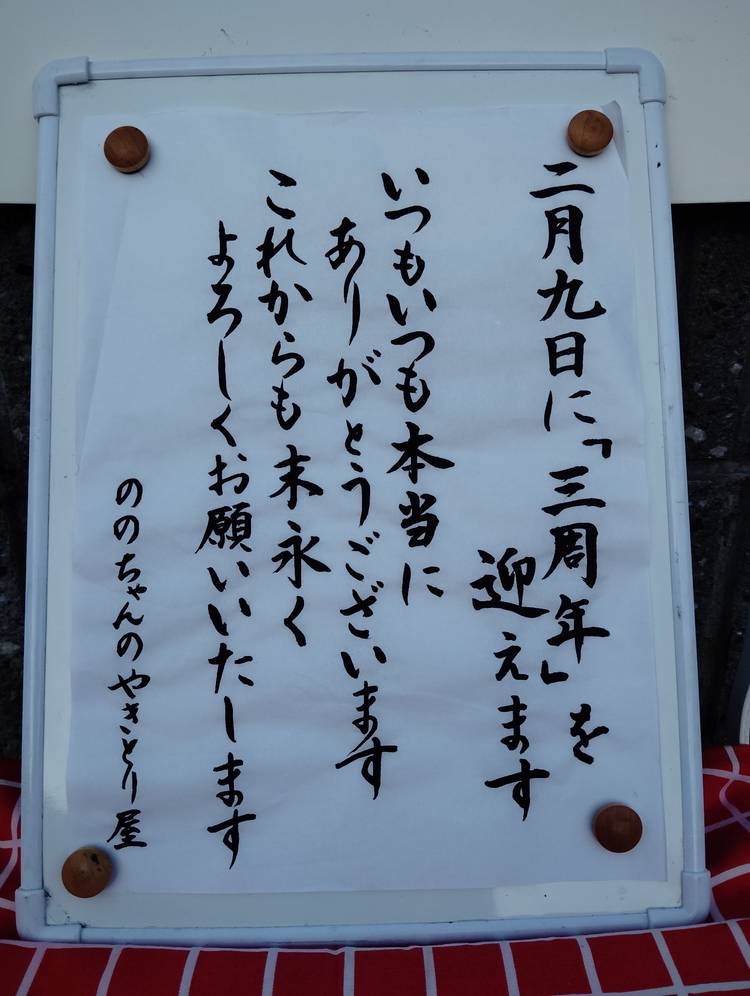 二月九日に「三周年」を
迎えます
いつもいつも本当に
ありがとうございます
これからも末永く
よろしくお願いいたします
ののちゃんのやきとり屋